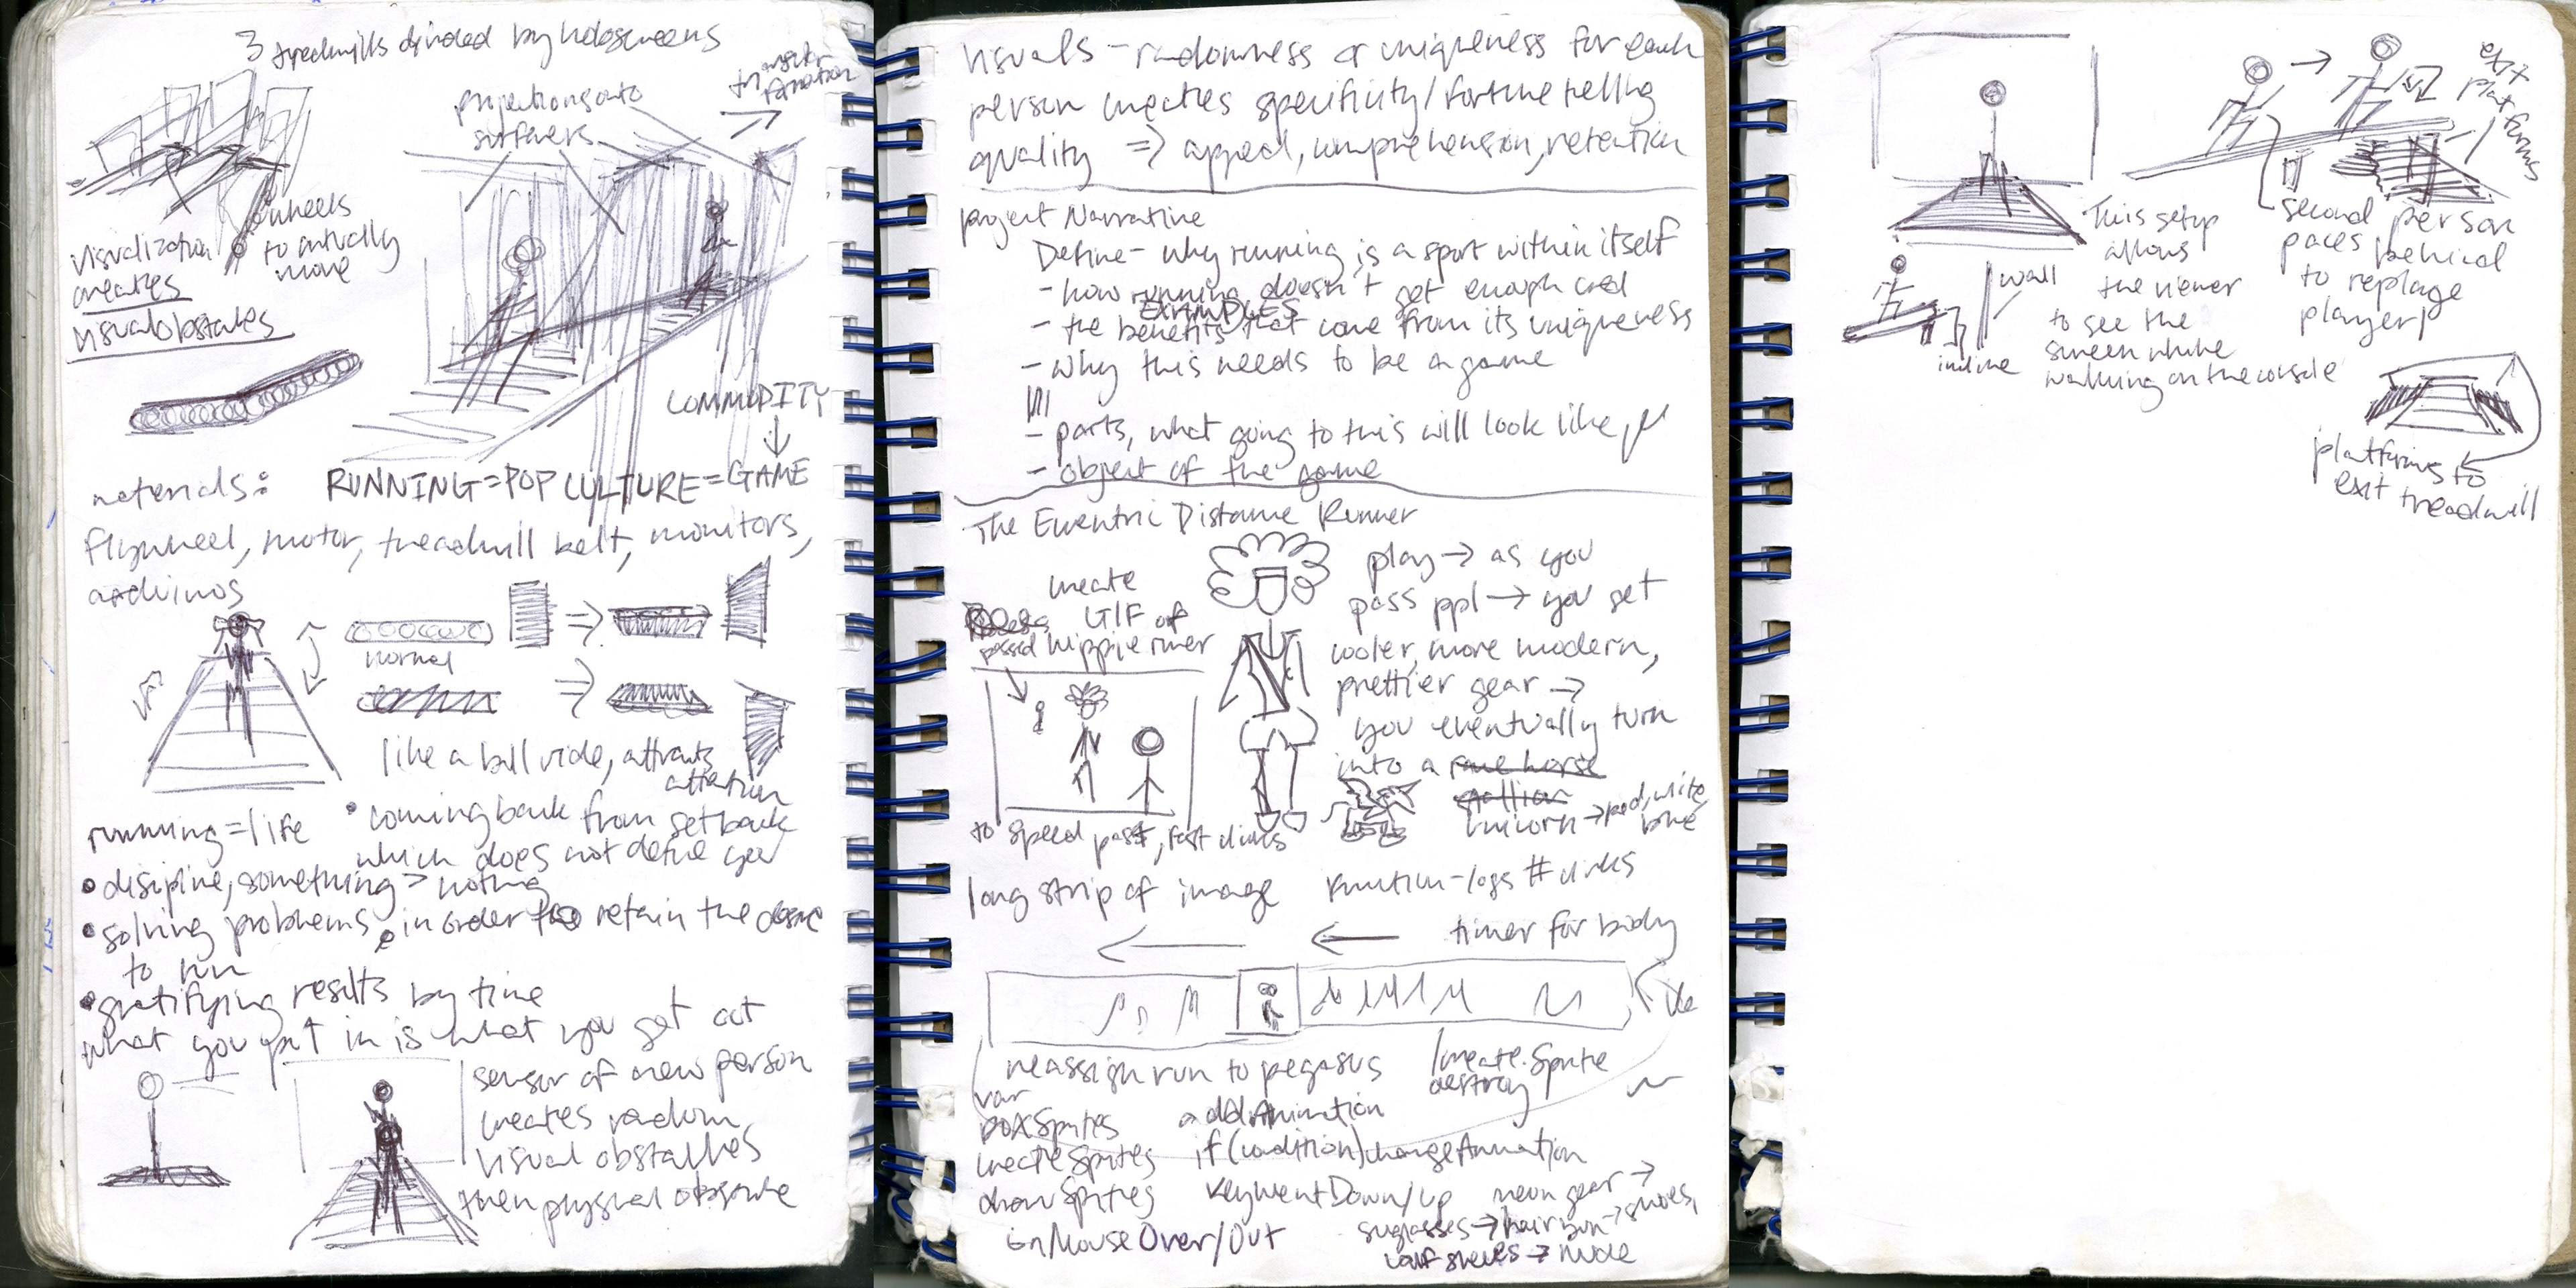 3 treadmills divided by holoscreens
projections onto
surfaces
wheels
to actually
move
visualization
creates
visual obstacles
COMMODITY
materials: RUNNING=POP CULTURE=GAME
flywheel, motor, treadmill belt, monitors,
arduinos
normal
like a bull ride, attracts
attention
running=life
• coming back from setback
which does not define you
• disipline, something > nothing
• solving problems in order to retain the desire
to run
• gratifying results by time
what you put in is what you get out
sensor of new person
creates random
visual obstacles
then physical obstacle
visuals - radomness or uniqueness for each
person creates specificity/fortune telling
quality => appeal, comprehension, retention
project Narrative
Define - why running is a sport within itself
- how running doesn't get enough cred
EXAMPLES
- the benefits that come from its uniqueness
- why this needs to be a game
- parts, what going to this will look like,
- object of the game
The Eccentric Distance Runner
create
GIF of
hippie runner
passed
play → as you
pass ppl → you get
cooler, more modern,
prettier gear →
you eventually turn
into a race horse
stallion
unicorn → red, white
blue
to speed past, fast clicks
long strip of image function-logs # clicks
timer for body
reassign run to pegasus
/create.Sprite
destroy
var
addAnimation
createSprites
if(condition)changeAnimation
drawSprites
keyWentDown/Up
neon gear →
sunglasses → hair bun → shoes,
onMouseOver/Out
calf sleeves → nude
exit
platforms
This setup
allows
the viewer
to see the
screen while
walking on the console
second person
paces behind
to replace
player
wall
incline
platforms to
exit treadmill